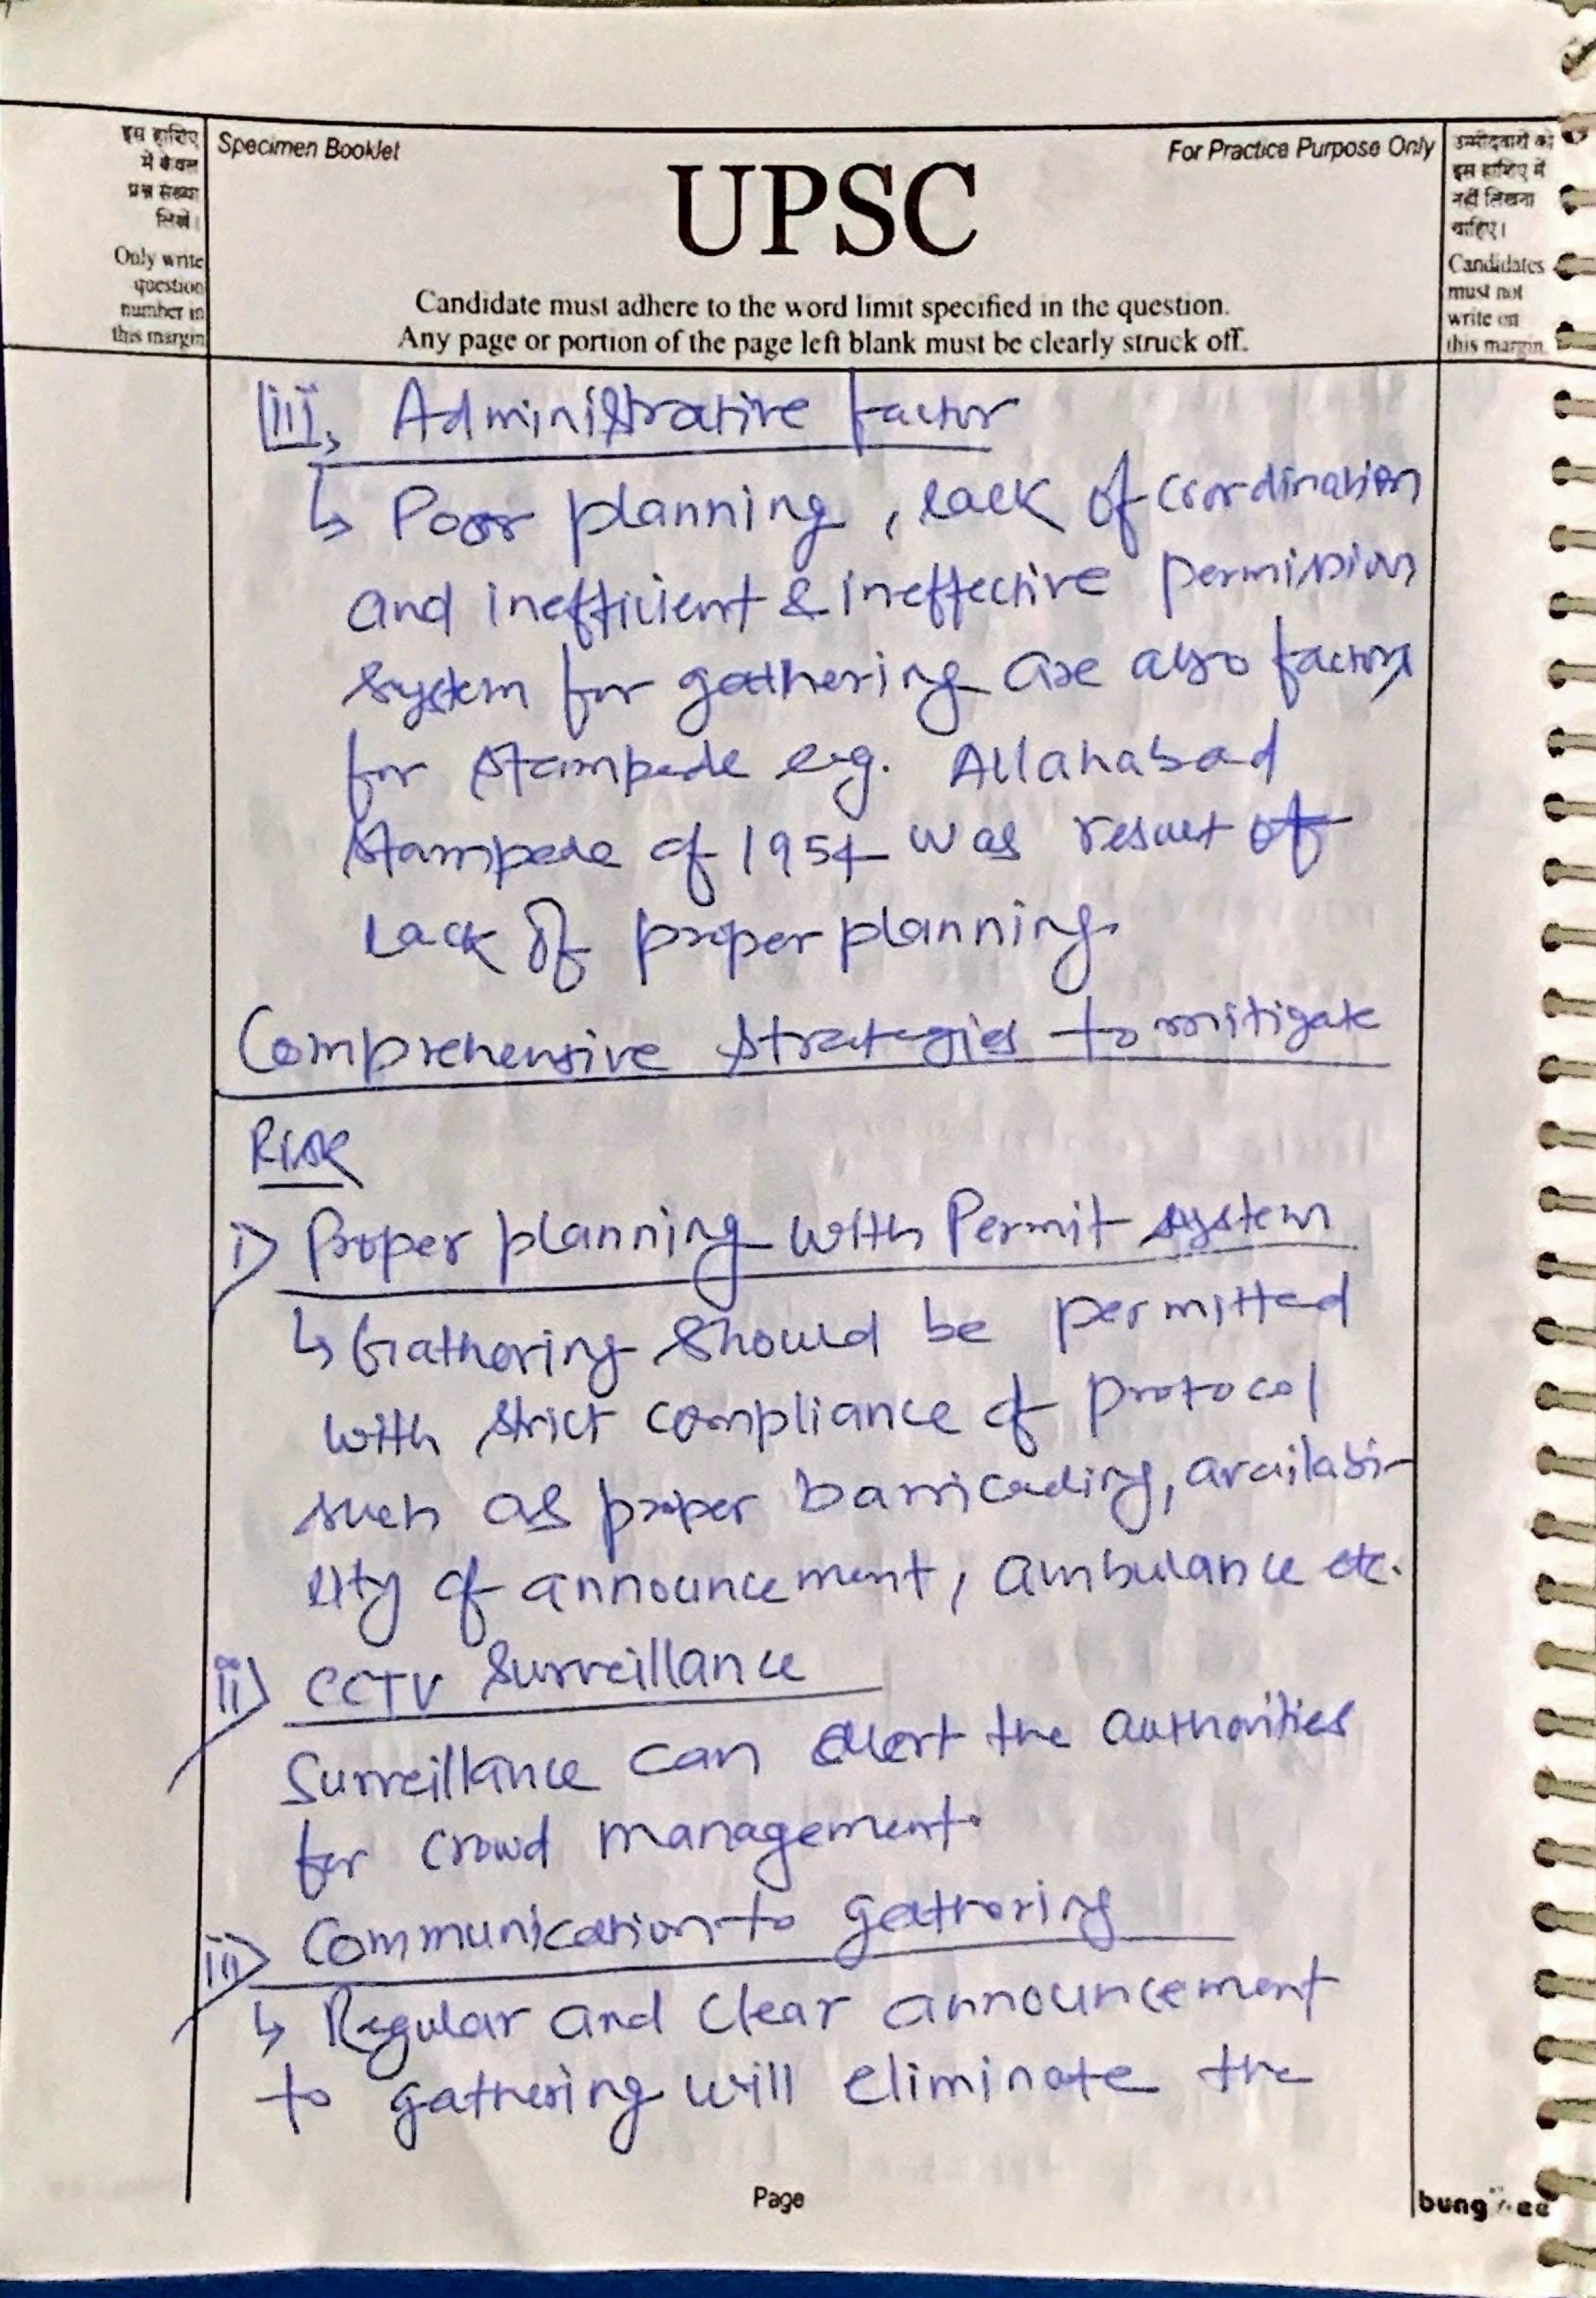 इस हाशिए
में केवल
प्रश्न संख्या
लिखें।
Only write
question
number in
this margin
Specimen Booklet
For Practice Purpose Only
UPSC
Candidate must adhere to the word limit specified in the question.
Any page or portion of the page left blank must be clearly struck off.
उम्मीदवारों को
इस हाशिए में
नहीं लिखना
चाहिए।
Candidates
must not
write on
this margin
iii, Administrative factor
↳ Poor planning, lack of coordination
and inefficient & ineffective permission
system for gathering are also factors
for stampede e.g. Allahabad
stampede of 1954 was result of
lack of proper planning.
Comprehensive strategies to mitigate
Risk
i) Proper planning with Permit system
↳ Gathering should be permitted
with strict compliance of protocol
such as proper barricading, availabi-
lity of announcement, ambulance etc.
ii) CCTV Surveillance
Surveillance can alert the authorities
for crowd management.
iii) Communication to gathering
↳ Regular and clear announcement
to gathering will eliminate the
Page